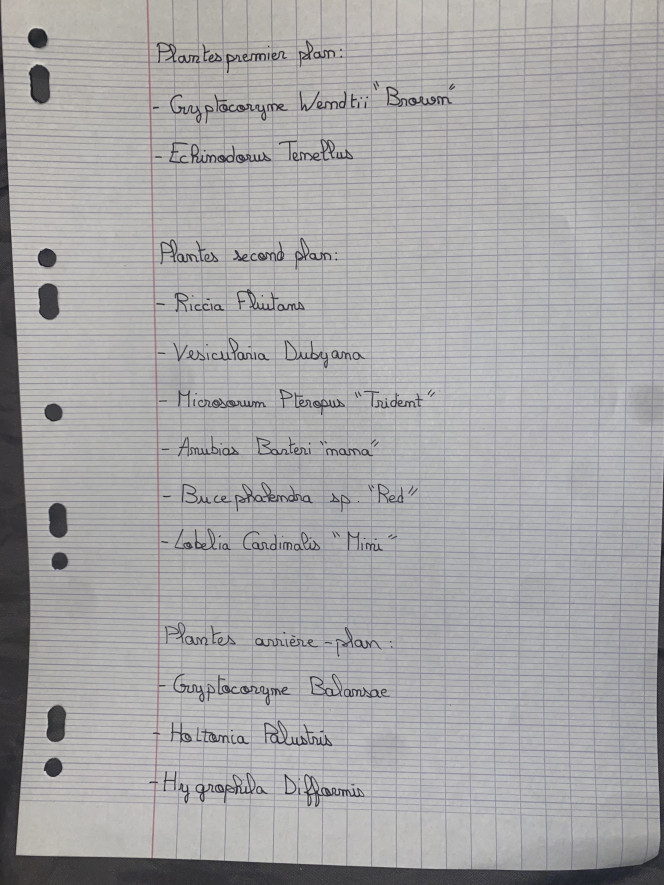 Plantes premier plan:
- Cryptocoryne Wendtii "Brown"
- Echinodorus Tenellus
Plantes second plan:
- Riccia Fluitans
- Vesicularia Dubyana
- Microsorum Pteropus "Trident"
- Anubias Barteri "nana"
- Bucephalendra sp. "Red"
- Lobelia Cardinalis "Mini"
Plantes arrière-plan:
- Cryptocoryne Balansae
- Holtonia Palustris
- Hygrophila Difformis